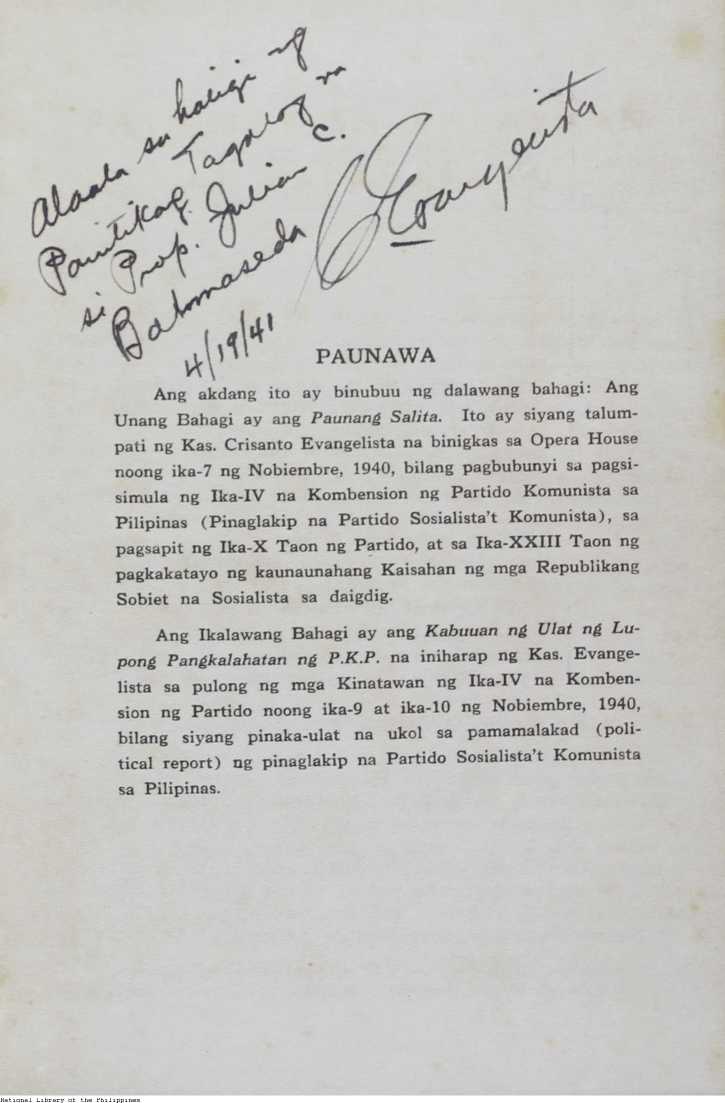 Alaala sa haligi ng
Panitikag Tagalog na
si Prop. Julian C.
Balmaseda
4/19/41
C Evangelista
PAUNAWA
Ang akdang ito ay binubuu ng dalawang bahagi: Ang
Unang Bahagi ay ang Paunang Salita. Ito ay siyang talum-
pati ng Kas. Crisanto Evangelista na binigkas sa Opera House
noong ika-7 ng Nobiembre, 1940, bilang pagbubunyi sa pagsi-
simula ng Ika-IV na Kombension ng Partido Komunista sa
Pilipinas (Pinaglakip na Partido Sosialista't Komunista), sa
pagsapit ng Ika-X Taon ng Partido, at sa Ika-XXIII Taon ng
pagkakatayo ng kaunaunahang Kaisahan ng mga Republikang
Sobiet na Sosialista sa daigdig.
Ang Ikalawang Bahagi ay ang Kabuuan ng̃ Ulat ng̃ Lu-
pong Pangkalahatan ng̃ P.K.P. na iniharap ng Kas. Evange-
lista sa pulong ng mga Kinatawan ng Ika-IV na Komben-
sion ng Partido noong ika-9 at ika-10 ng Nobiembre, 1940,
bilang siyang pinaka-ulat na ukol sa pamamalakad (poli-
tical report) ng pinaglakip na Partido Sosialista't Komunista
sa Pilipinas.
National Library of the Philippines